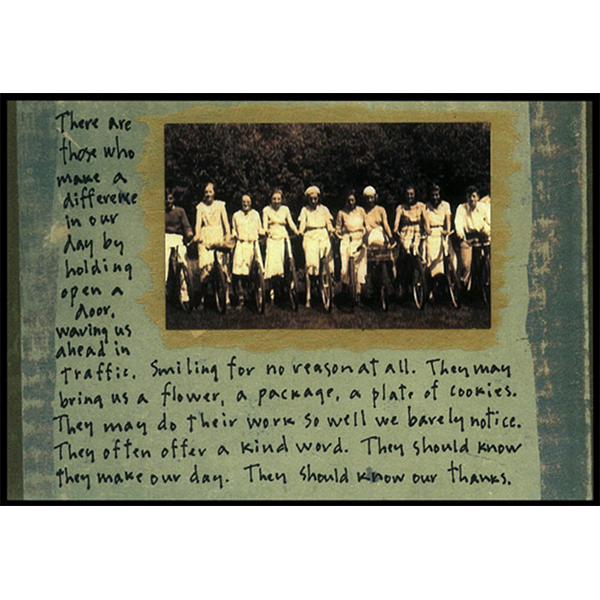 There are
those who
make a
difference
in our
day by
holding
open a
door,
waving us
ahead in
traffic. Smiling for no reason at all. They may
bring us a flower, a package, a plate of cookies.
They may do their work so well we barely notice.
They often offer a kind word. They should know
they make our day. They should know our thanks.